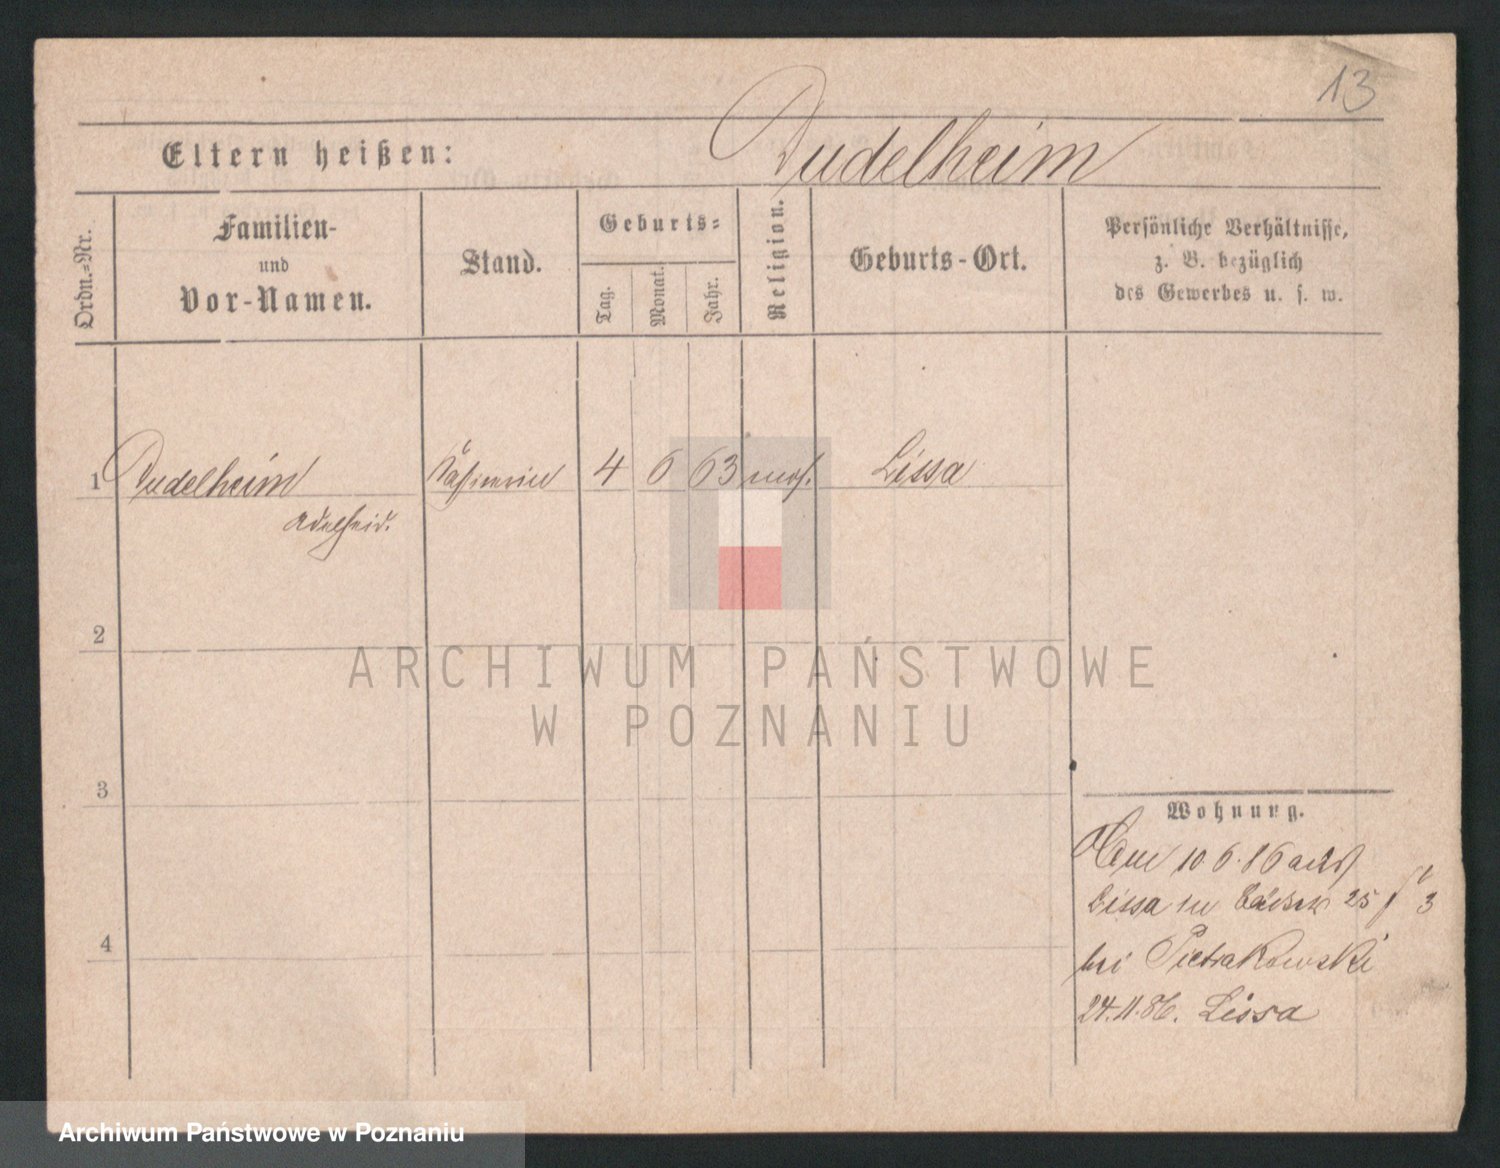 13
Dudelheim
Eltern heißen:
Ordn.-Nr.
Familien-
und
Vor-Namen.
Stand.
Geburts-
Tag.
Monat.
Jahr.
Religion.
Geburts-Ort.
Persönliche Verhältnisse,
z. B. bezüglich
des Gewerbes u. s. w.
1 Dudelheim 4 6 63 mos. Lissa
Adelheid.
2
3
4
Wohnung.
10 6. 86 aus
Lissa 25 3
bei Pietrakowski
24.11.86. Lissa
ARCHIWUM PAŃSTWOWE
W POZNANIU
Archiwum Państwowe w Poznaniu